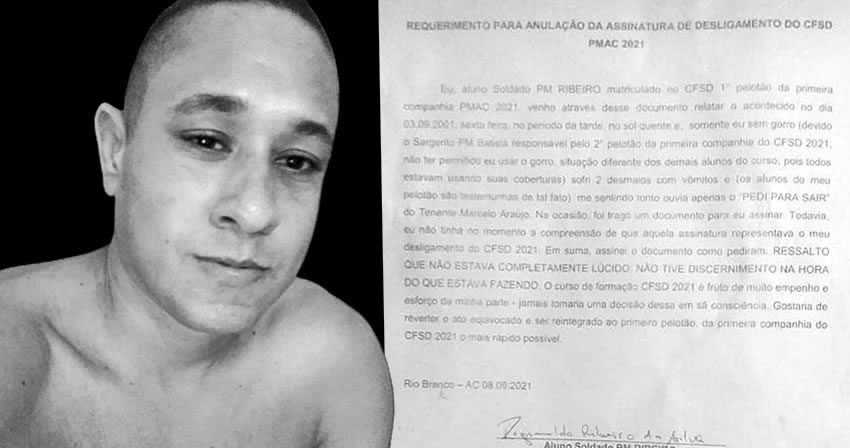 REQUERIMENTO PARA ANULAÇÃO DA ASSINATURA DE DESLIGAMENTO DO CFSD
PMAC 2021
Eu, aluno Soldado PM RIBEIRO matriculado no CFSD 1° pelotão da primeira
companhia PMAC 2021, venho através desse documento relatar o acontecido no dia
03.09.2001, sexta feira, no período da tarde, no sol quente e, somente eu sem gorro (devido
o Sargento PM Batista responsável pelo 2° pelotão da primeira companhia do CFSD 2021,
não ter permitiu eu usar o gorro, situação diferente dos demais alunos do curso, pois todos
estavam usando suas coberturas) sofri 2 desmaios com vômitos e (os alunos do meu
pelotão são testemunhas de tal fato) me sentindo tonto ouvia apenas o "PEDI PARA SAIR"
do Tenente Marcelo Araújo. Na ocasião, foi trago um documento para eu assinar. Todavia,
eu não tinha no momento a compreensão de que aquela assinatura representava o meu
desligamento do CFSD 2021. Em suma, assinei o documento como pediram. RESSALTO
QUE NÃO ESTAVA COMPLETAMENTE LÚCIDO, NÃO TIVE DISCERNIMENTO NA HORA
DO QUE ESTAVA FAZENDO. O curso de formação CFSD 2021 é fruto de muito empenho e
esforço da minha parte - jamais tomaria uma decisão dessa em sã consciência. Gostaria de
reverter o ato equivocado e ser reintegrado ao primeiro pelotão, da primeira companhia do
CFSD 2021 o mais rápido possível.
Rio Branco – AC 08.09.2021
Ribeiro da Silva
Aluno Soldado PM RIBEIRO